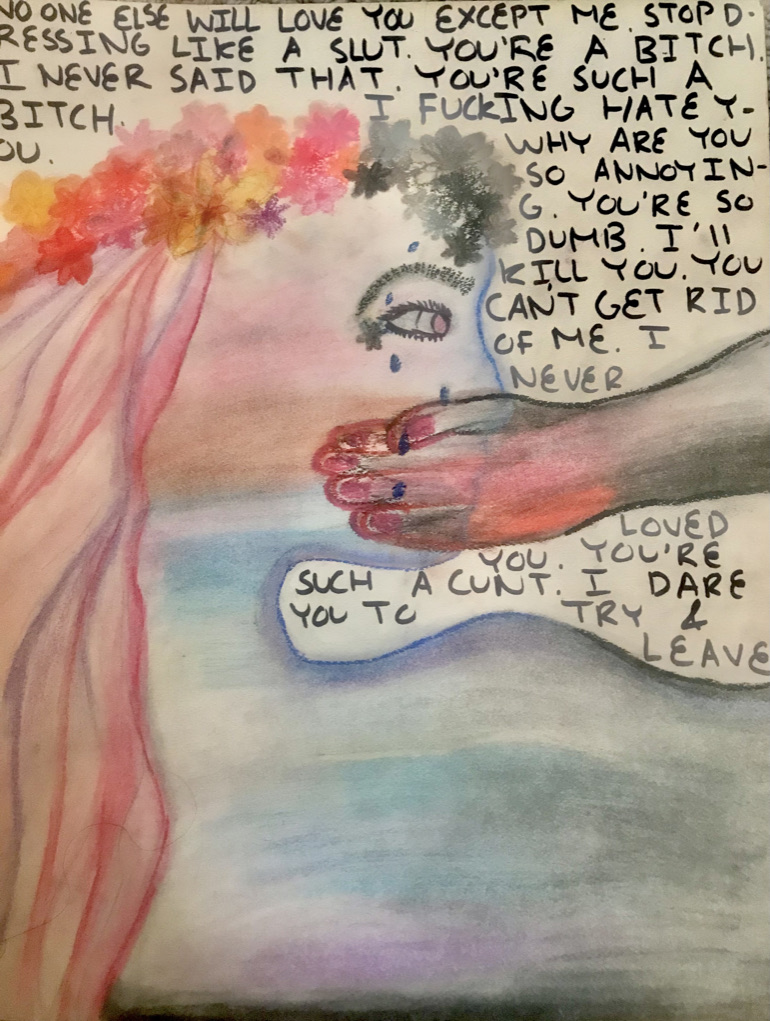 NO ONE ELSE WILL LOVE YOU EXCEPT ME. STOP D-
RESSING LIKE A SLUT. YOU'RE A BITCH.
I NEVER SAID THAT. YOU'RE SUCH A
BITCH. I FUCKING HATE Y-
OU. WHY ARE YOU
SO ANNOYIN-
G. YOU'RE SO
DUMB. I'll
KILL YOU. YOU
CAN'T GET RID
OF ME. I
NEVER
LOVED
YOU. YOU'RE
SUCH A CUNT. I DARE
YOU TO TRY &
LEAVE